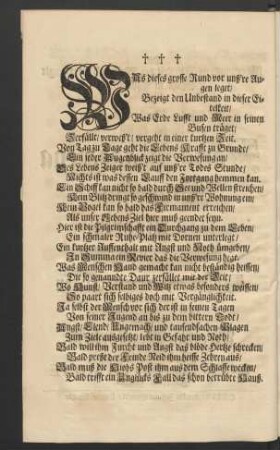 † † †
WAs dieses grosse Rund vor unß're Au-
gen leget/
Bezeigt den Unbestand in dieser Ei-
telkeit/
Was Erde Lufft und Meer in seinen
Busen träget/
Zerfället/ verweß't/ vergeht in einer kurtzen Zeit.
Von Tag zu Tage geht die Lebens Krafft zu Grunde/
Ein jeder Augenblick zeigt die Verwesung an/
Des Lebens Zeiger weiß't auf unß're Todes Stunde/
Nichts ist was dessen Lauff den Fortgang hemmen kan.
Ein Schiff kan nicht so bald durch See und Wellen streichen/
Kein Blitz dringt so geschwind in unß're Wohnung ein/
Kein Vogel kan so bald das Firmament erreichen/
Als unser Lebens Ziel hier muß geendet seyn.
Hier ist die Pilgrimschafft ein Durchgang zu dem Leben/
Ein schmaler Ruhe-Platz mit Dornen unterlegt/
Ein kurtzer Auffenthalt mit Angst und Noth umgeben/
In Summa ein Revier das die Verwesung hegt.
Was Menschen Hand gemacht kan nicht beständig heissen/
Die so genandte Daur zerfället mit der Zeit/
Wo Kunst/ Verstand und Witz etwas besonders weissen/
So paart sich selbiges doch mit Vergänglichkeit.
Ja selbst der Mensch vor sich der ist in seinen Tagen
Von seiner Jugend an bis zu dem bittern Todt/
Angst/ Elend/ Ungemach/ und tausendfachen Plagen
Zum Ziele ausgesetzt/ lebt in Gefahr und Noth/
Bald will ihm Furcht und Angst das blöde Hertze schrecken
Bald preßt der Feinde Neid ihm heisse Zehren aus/
Bald muß die Hiobs Post ihm aus dem Schlaffe wecken/
Bald trifft ein Unglücks Fall das schon betrübte Hauß.